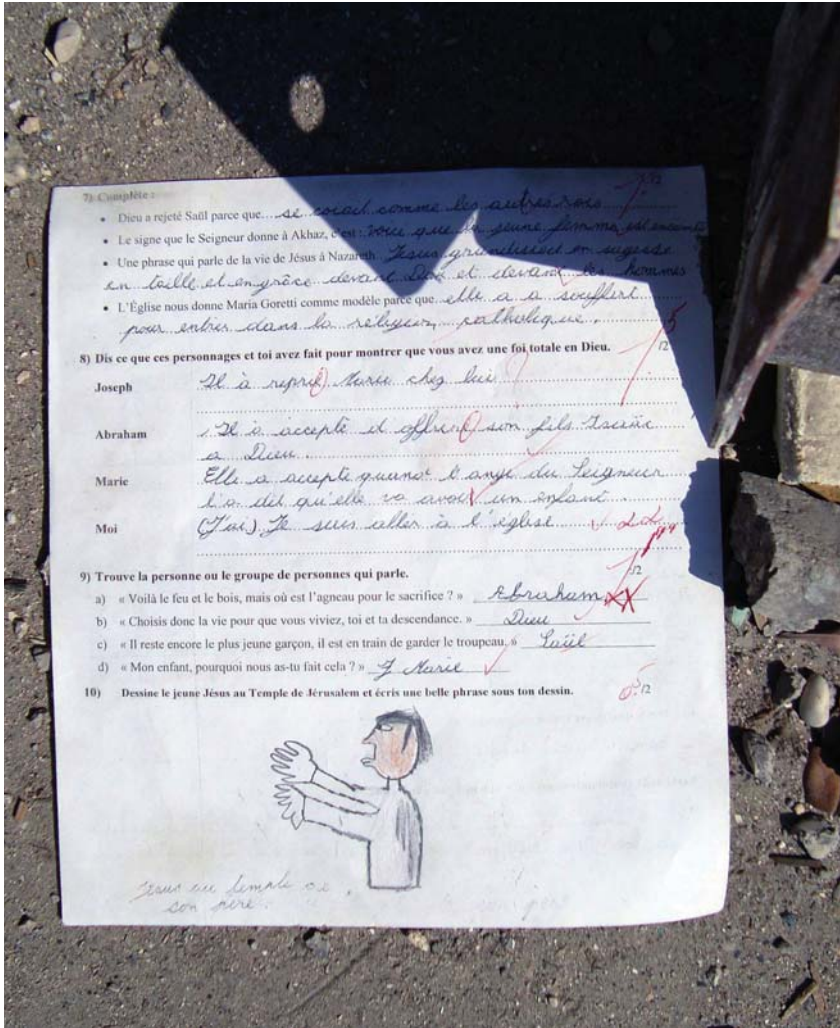 7) Complète :
• Dieu a rejeté Saül parce que se comme les autres rois
• Le signe que le Seigneur donne à Akhaz, c'est : voici que la jeune femme est enceinte
• Une phrase qui parle de la vie de Jésus à Nazareth Jesus grandissait en sagesse
en taille et en grâce devant Dieu et devant les hommes
• L'Église nous donne Maria Goretti comme modèle parce que elle a a souffert
pour entrer dans la catholique.
8) Dis ce que ces personnages et toi avez fait pour montrer que vous avez une foi totale en Dieu. /2
Joseph Il à repris Marie chez lui
Abraham Il a accepté d'offrire son fils Isaac
a Dieu.
Marie Elle a accepte quand l'ange du Seigneur
l'a dit qu'elle va avoir un enfant.
Moi (J'ai) Je suis aller à l'église
9) Trouve la personne ou le groupe de personnes qui parle. /2
a) « Voilà le feu et le bois, mais où est l'agneau pour le sacrifice ? » Abraham
b) « Choisis donc la vie pour que vous viviez, toi et ta descendance. » Dieu
c) « Il reste encore le plus jeune garçon, il est en train de garder le troupeau. » Saül
d) « Mon enfant, pourquoi nous as-tu fait cela ? » Marie
10) Dessine le jeune Jésus au Temple de Jérusalem et écris une belle phrase sous ton dessin. /2
Jesus au temple de
son père.